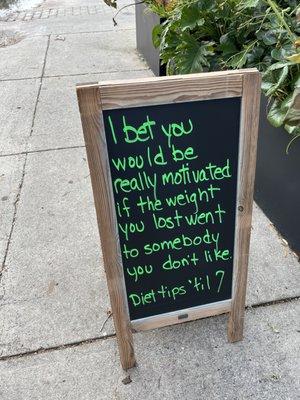 I bet you
would be
really motivated
if the weight
you lost went
to somebody
you don't like.
Diet tips 'til 7